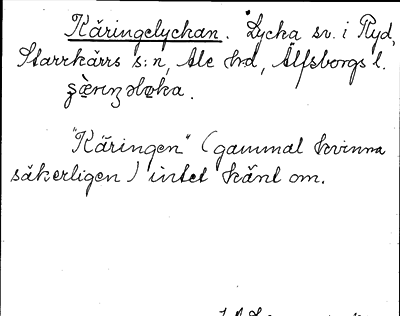 Käringelyckan. Lycka sv. i Ryd,
Starrkärrs s:n, Ale hrd, Älfsborgs l.
"Käringen" (gammal kvinna
säkerligen) intet känt om.